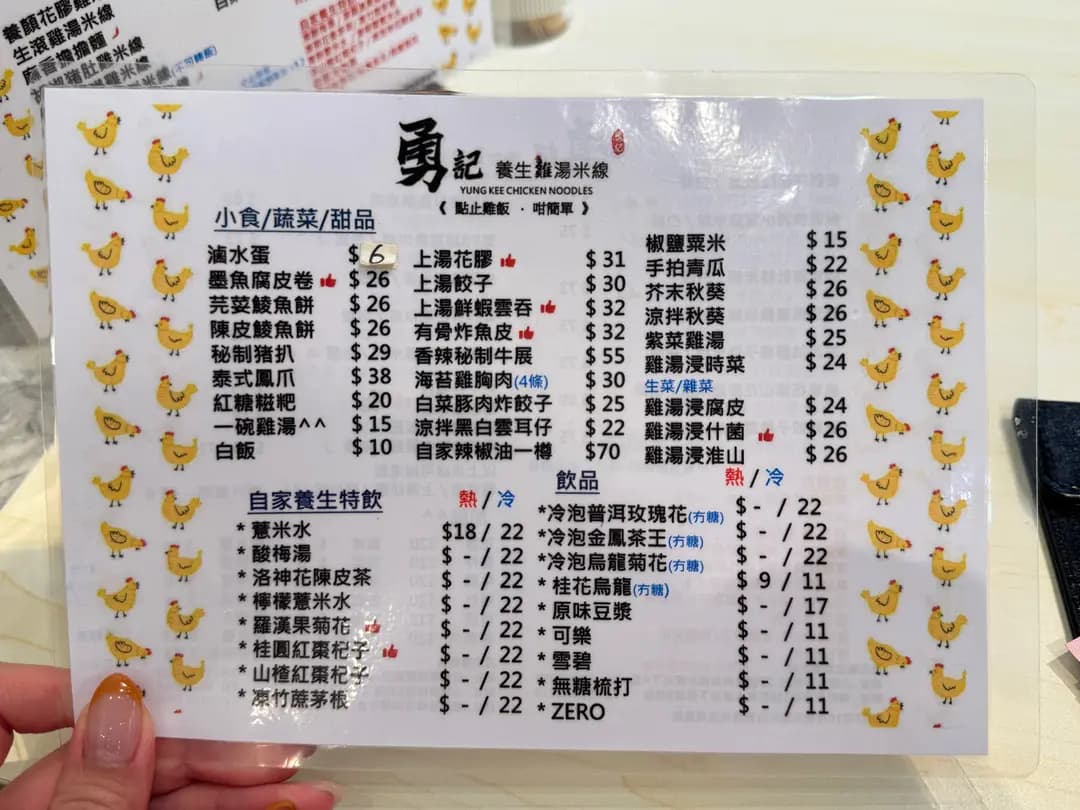 養顏花膠雞
生滾雞湯米線
麻香擔擔麵
猪肚雞米線
(不可轉飯)
勇記 養生雞湯米線
YUNG KEE CHICKEN NOODLES
《 點止雞飯 · 咁簡單 》
小食/蔬菜/甜品
滷水蛋 $ 6
墨魚腐皮卷 $ 26
芫荽鯪魚餅 $ 26
陳皮鯪魚餅 $ 26
秘制猪扒 $ 29
泰式鳳爪 $ 38
紅糖糍粑 $ 20
一碗雞湯^^ $ 15
白飯 $ 10
上湯花膠 $ 31
上湯餃子 $ 30
上湯鮮蝦雲吞 $ 32
有骨炸魚皮 $ 32
香辣秘制牛展 $ 55
海苔雞胸肉(4條) $ 30
白菜豚肉炸餃子 $ 25
涼拌黑白雲耳仔 $ 22
自家辣椒油一樽 $70
椒鹽粟米 $ 15
手拍青瓜 $ 22
芥末秋葵 $ 26
涼拌秋葵 $ 26
紫菜雞湯 $ 25
雞湯浸時菜 $ 24
生菜/雜菜
雞湯浸腐皮 $ 24
雞湯浸什菌 $ 26
雞湯浸淮山 $ 26
自家養生特飲 熱 / 冷
* 薏米水 $18 / 22
* 酸梅湯 $ - / 22
* 洛神花陳皮茶 $ - / 22
* 檸檬薏米水 $ - / 22
* 羅漢果菊花 $ - / 22
* 桂圓紅棗杞子 $ - / 22
* 山楂紅棗杞子 $ - / 22
* 凉竹蔗茅根 $ - / 22
飲品 熱 / 冷
*冷泡普洱玫瑰花(冇糖) $ - / 22
*冷泡金鳳茶王(冇糖) $ - / 22
*冷泡烏龍菊花(冇糖) $ - / 22
* 桂花烏龍(冇糖) $ 9 / 11
* 原味豆漿 $ - / 17
* 可樂 $ - / 11
* 雪碧 $ - / 11
* 無糖梳打 $ - / 11
* ZERO $ - / 11